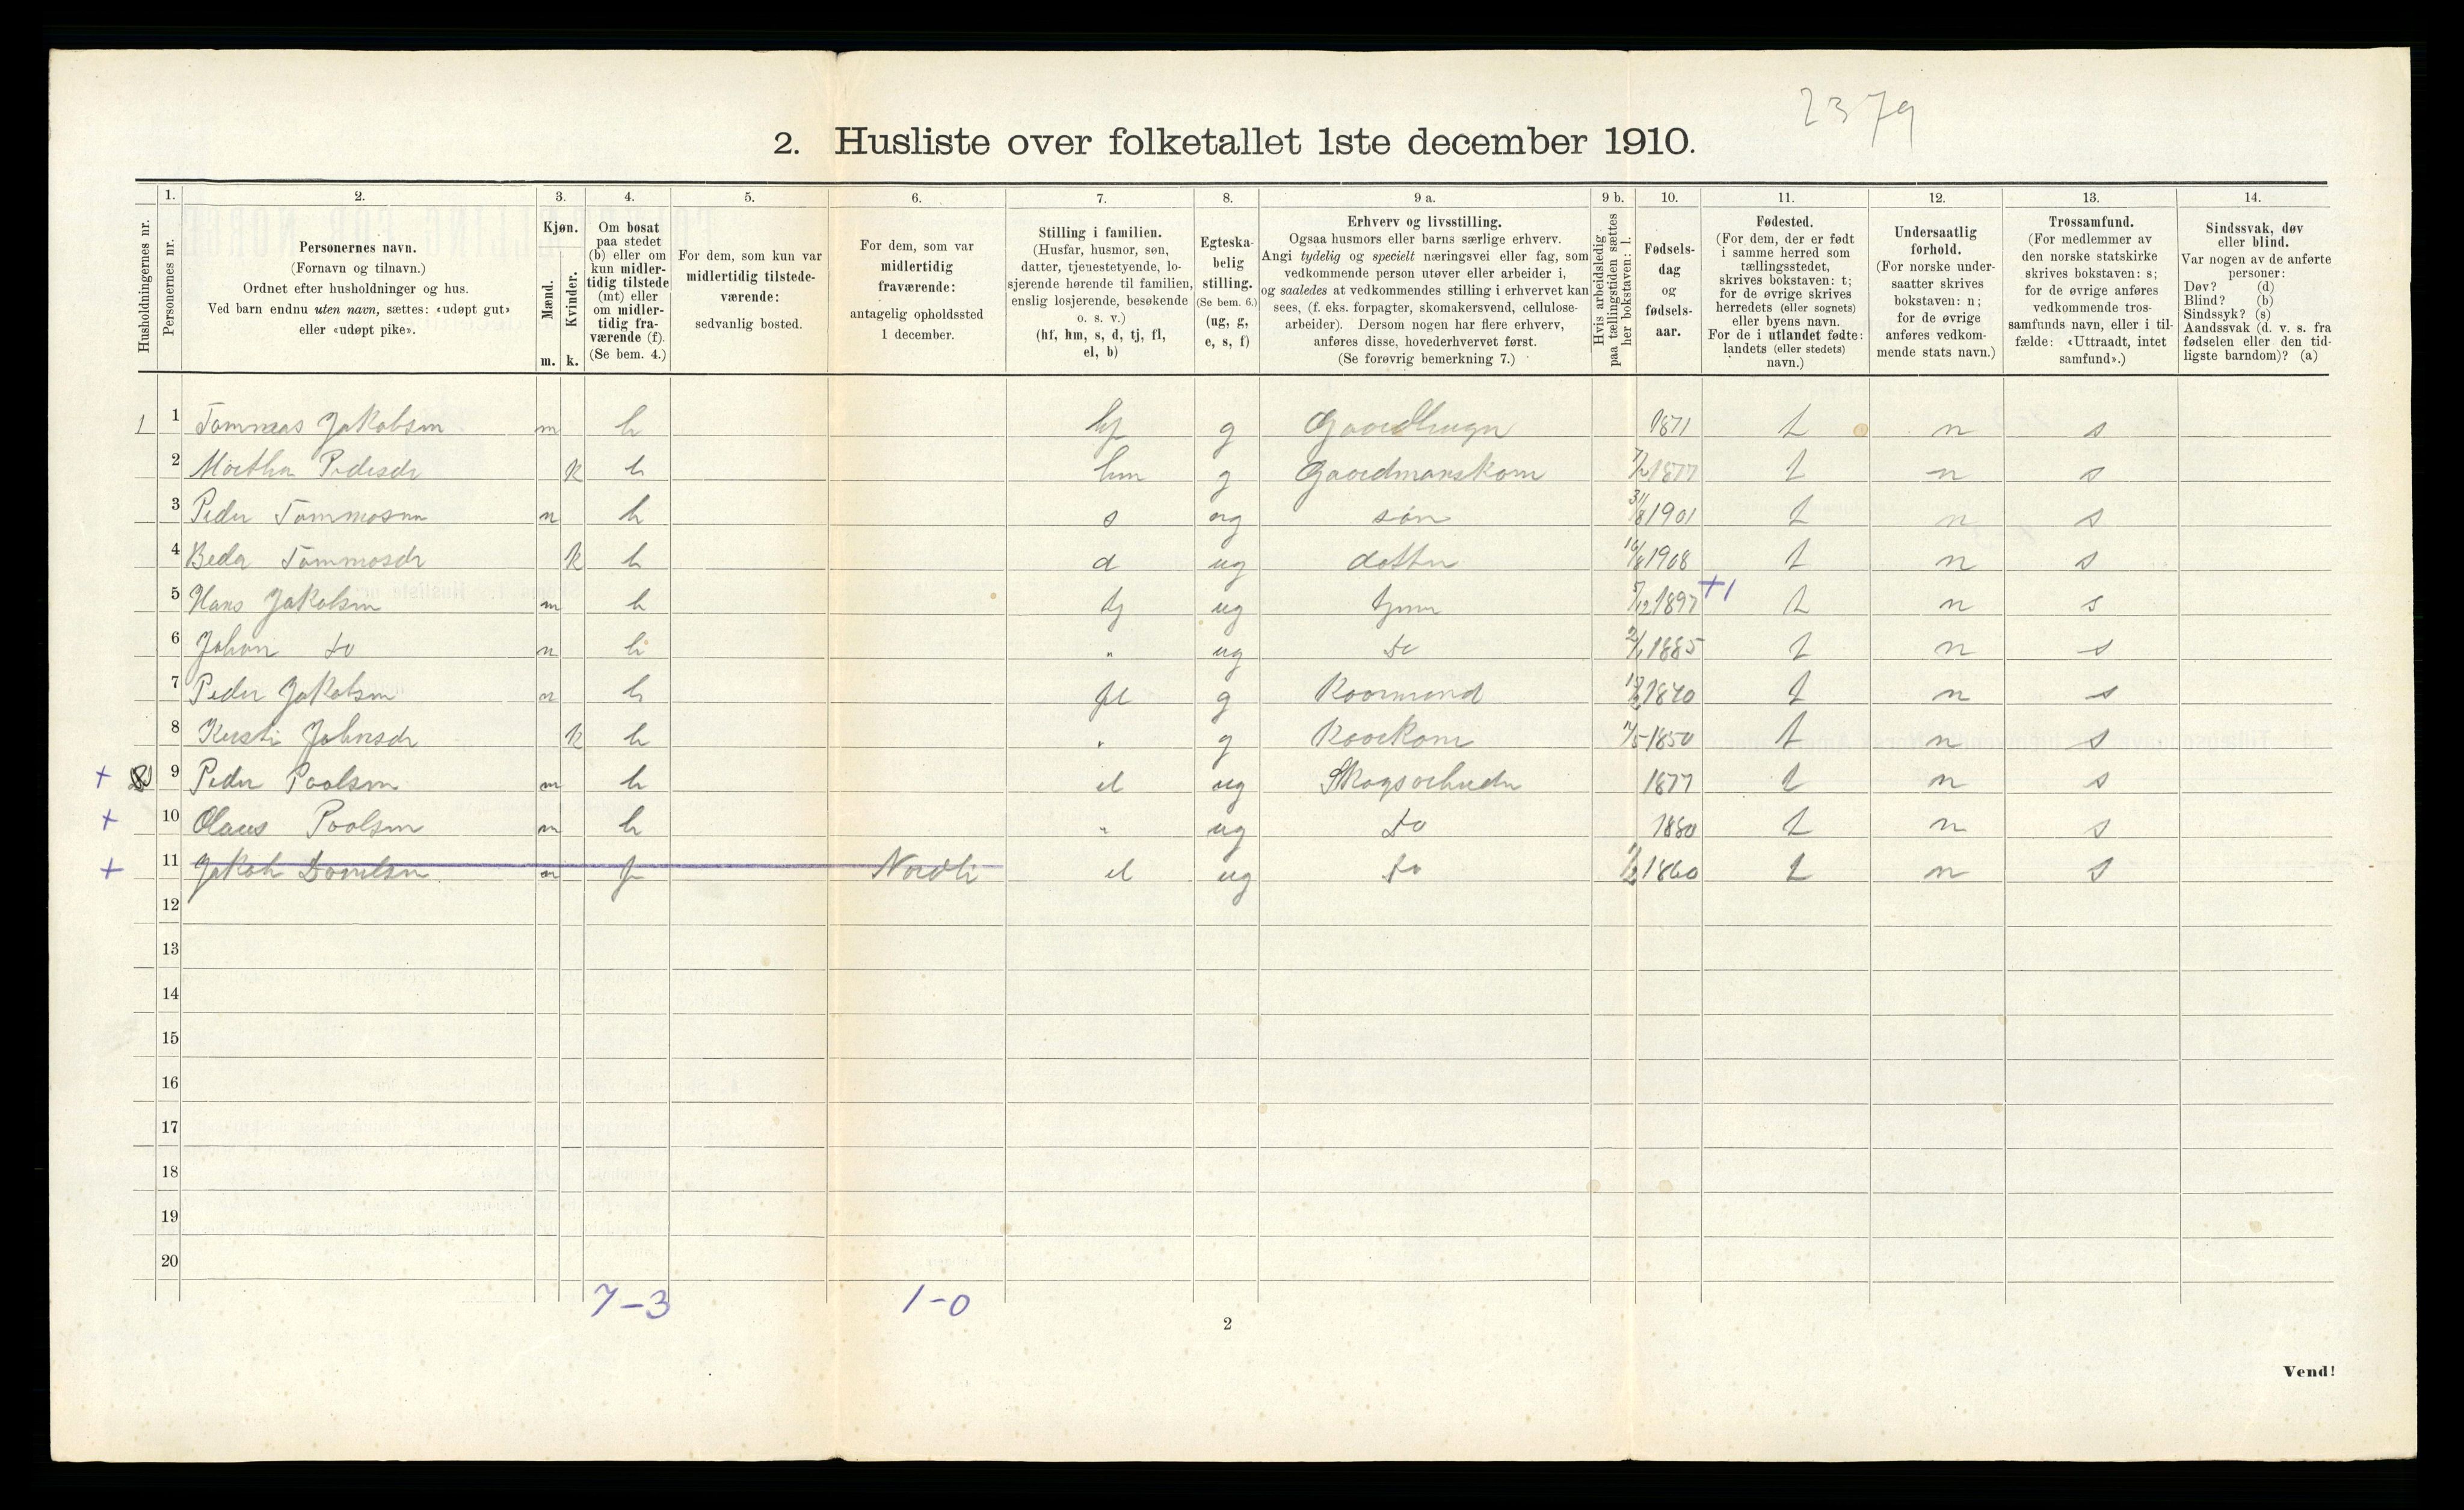 2379
2. Husliste over folketallet 1ste december 1910.
Husholdningernes nr.
1.
Personernes nr.
2.
Personernes navn.
(Fornavn og tilnavn.)
Ordnet efter husholdninger og hus.
Ved barn endnu uten navn, sættes: «udøpt gut»
eller «udøpt pike».
3.
Kjøn.
Mænd.
Kvinder.
m. k.
4.
Om bosat
paa stedet
(b) eller om
kun midler-
tidig tilstede
(mt) eller
om midler-
tidig fra-
værende (f).
(Se bem. 4.)
5.
For dem, som kun var
midlertidig tilstede-
værende:
sedvanlig bosted.
6.
For dem, som var
midlertidig
fraværende:
antagelig opholdssted
1 december.
7.
Stilling i familien.
(Husfar, husmor, søn,
datter, tjenestetyende, lo-
sjerende hørende til familien,
enslig losjerende, besøkende
o. s. v.)
(hf, hm, s, d, tj, fl,
el, b)
8.
Egteska-
belig
stilling.
(Se bem. 6.)
(ug, g,
e, s, f)
9 a.
Erhverv og livsstilling.
Ogsaa husmors eller barns særlige erhverv.
Angi tydelig og specielt næringsvei eller fag, som
vedkommende person utøver eller arbeider i,
og saaledes at vedkommendes stilling i erhvervet kan
sees, (f. eks. forpagter, skomakersvend, cellulose-
arbeider). Dersom nogen har flere erhverv,
anføres disse, hovederhvervet først.
(Se forøvrig bemerkning 7.)
9 b.
Hvis arbeidsledig
paa tællingstiden sættes
her bokstaven: l.
10.
Fødsels-
dag
og
fødsels-
aar.
11.
Fødested.
(For dem, der er født
i samme herred som
tællingsstedet,
skrives bokstaven: t;
for de øvrige skrives
herredets (eller sognets)
eller byens navn.
For de i utlandet fødte:
landets (eller stedets)
navn.)
12.
Undersaatlig
forhold.
(For norske under-
saatter skrives
bokstaven: n;
for de øvrige
anføres vedkom-
mende stats navn.)
13.
Trossamfund.
(For medlemmer av
den norske statskirke
skrives bokstaven: s;
for de øvrige anføres
vedkommende tros-
samfunds navn, eller i til-
fælde: «Uttraadt, intet
samfund».)
14.
Sindssvak, døv
eller blind.
Var nogen av de anførte
personer:
Døv? (d)
Blind? (b)
Sindssyk? (s)
Aandssvak (d. v. s. fra
fødselen eller den tid-
ligste barndom)? (a)
1 1 Tommas Jakobsen m b hf g 1871 t n s
2 Martha Pedersdr k b hm g Gaardmanskone 1877 t n s
3 Peder Tommosen m b s ug søn 31/8 1901 t n s
4 Beda Tommosdr k b d ug datter 16/8 1908 t n s
5 Hans Jakobsen m b tj ug 5/12 1897 +1 t n s
6 Johan do m b " ug do 2/1 1885 t n s
7 Peder Jakobsen m b fl g Kaarmand 1840 t n s
8 Kersti Johnsdr k b " g Kaarkone 1850 t n s
+ 9 Peder Paalsen m b el ug Skogsarbeider 1877 t n s
+ 10 Olaus Paalsen m b " ug do 1880 t n s
+ 11 Jakob Danielsen m f Nordli el ug do 1860 t n s
12
13
14
15
16
17
18
19
20
7-3 1-0
2
Vend!